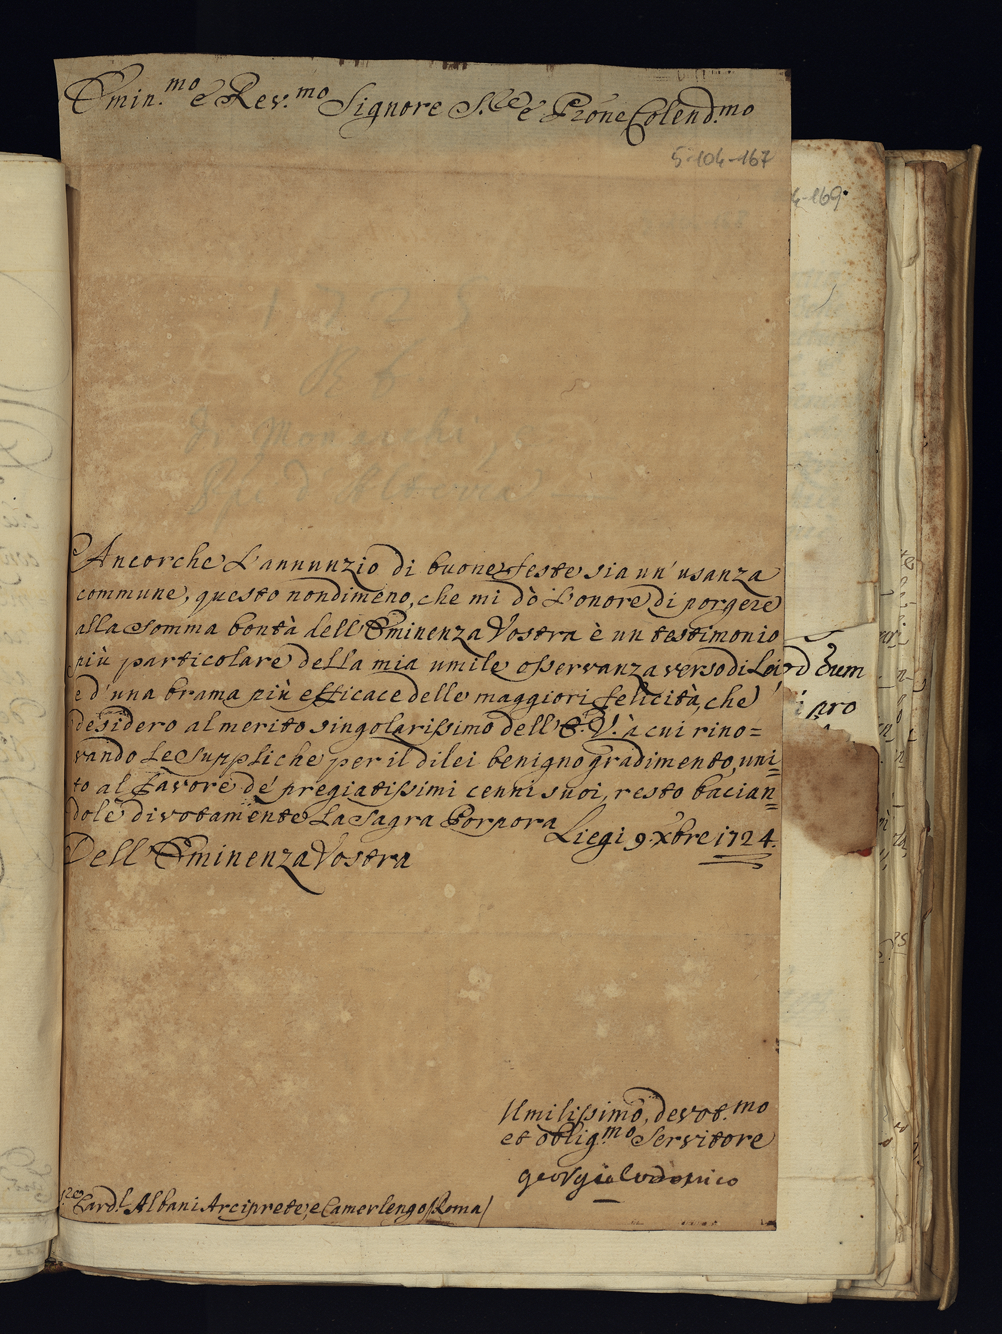 Emin.mo e Rev.mo Signore S.re e Prone Colend.mo
5-104-167
4-169.
Ancorche L'annunzio di buone feste sia un'usanza
commune, questo nondimeno, che mi dò L'onore di porgere
alla somma bontà dell'Eminenza Vostra è un testimonio
più particolare della mia umile osservanza verso di Lei
e d'una brama più efficace delle maggiori felicità, che
desidero al merito singolarissimo dell'E.V. à cui rino=
vando Le Suppliche per il di lei benigno gradimento, uni=
to al favore de' pregiatissimi cenni suoi, resto bacian=
dole divotamente La Sagra Porpora Liegi 9 Xbre 1724.
Dell'Eminenza Vostra
Umilissimo, devot.mo
et oblig.mo Servitore
Georgio Lodovico
Card.l Albani Arciprete, e Camerlengo /Roma/